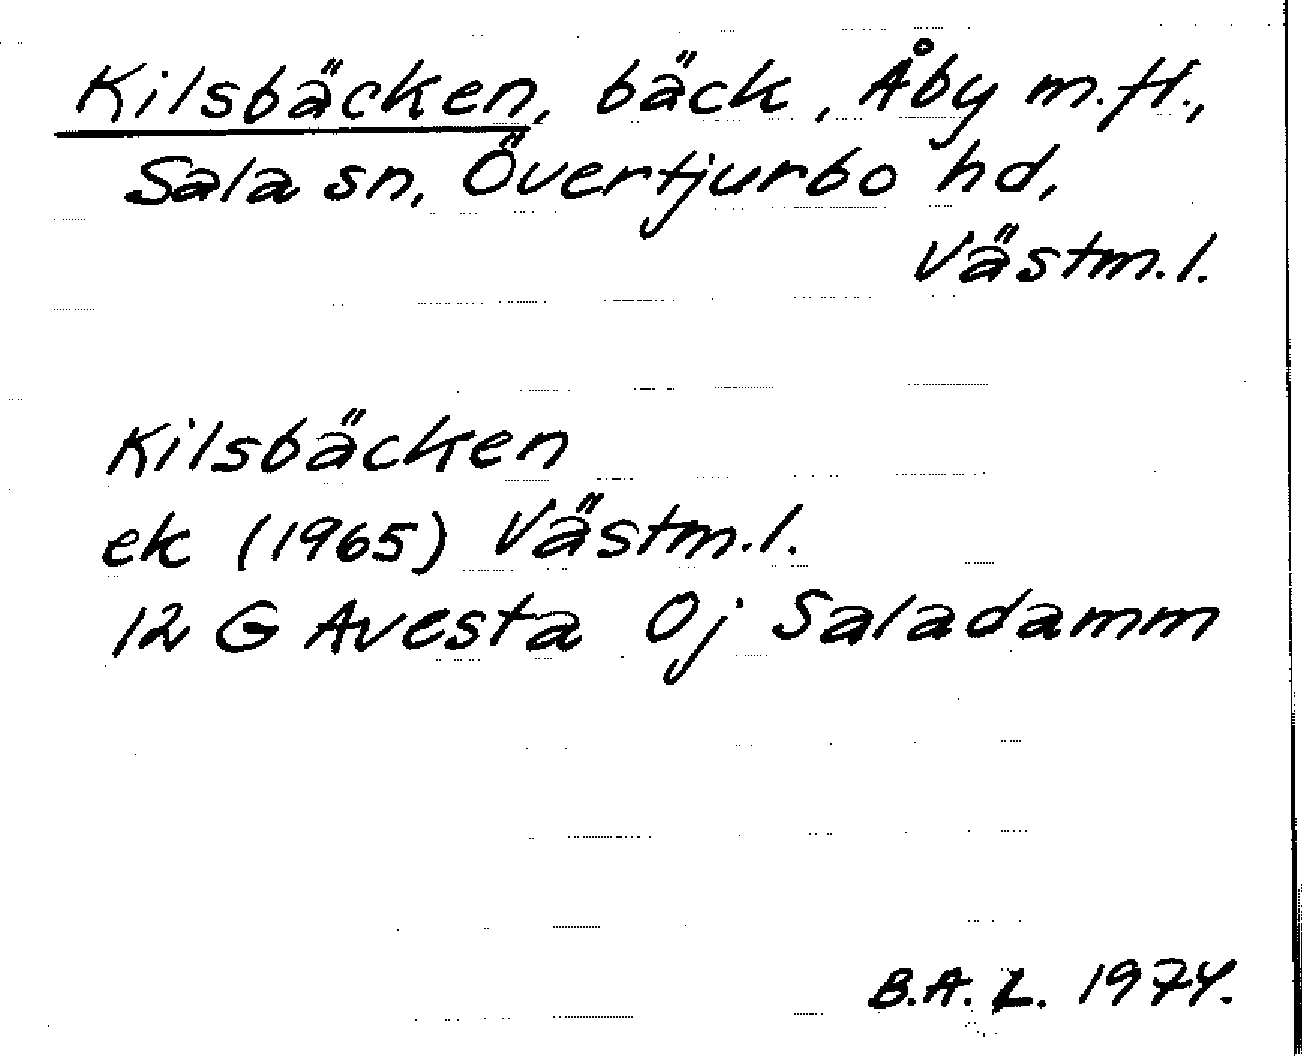 Kilsbäcken, bäck, Åby m.fl.,
Sala sn, Övertjurbo hd,
Västm.l.
Kilsbäcken
ek (1965) Västm.l.
12 G Avesta Oj Saladamm
B.A.L. 1974.